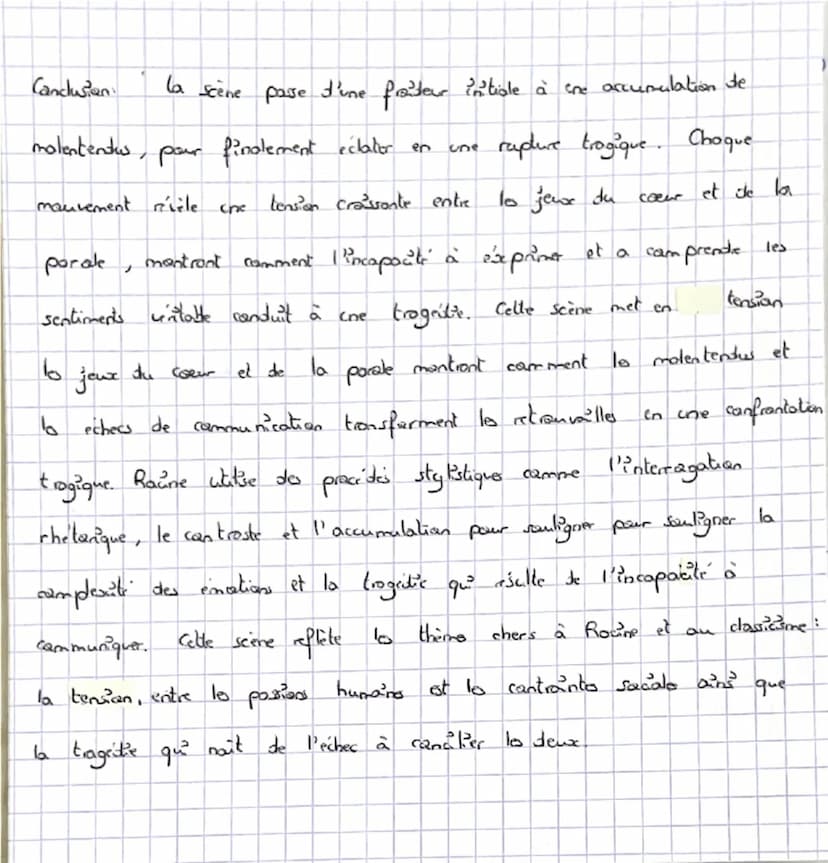 Conclusion: La scène passe d'une froideur initiale à une accumulation de
malentendus, pour finalement éclater en une rupture tragique. Chaque
mouvement révèle une tension croissante entre les jeux du cœur et de la
parole, montrant comment l'incapacité à exprimer et a comprendre les
sentiments véritable conduit à une tragédie. Cette scène met en tension
les jeux du coeur et de la parole montrant comment les malentendus et
les échecs de communication transforment les retrouvailles en une confrontation
tragique. Racine utilise des procédés stylistiques comme l'interrogation
rhétorique, le contraste et l'accumulation pour souligner pour souligner la
complexité des émotions et la tragédie qui résulte de l'incapacité à
communiquer. Cette scène reflète les thème chers à Racine et au classicisme :
la tension, entre les passions humaines et les contraintes sociales ainsi que
la tragédie qui naît de l'échec à concilier les deux.